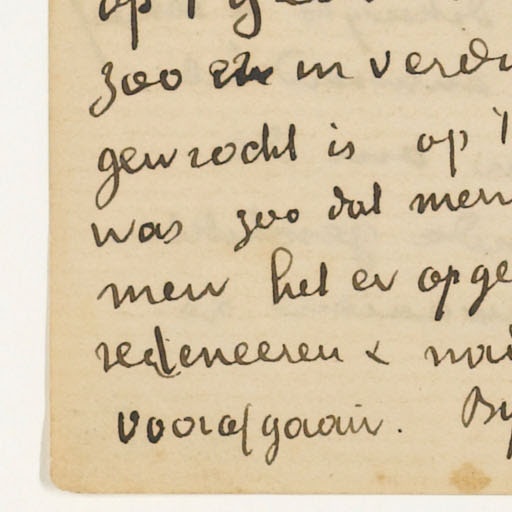 op 't
zoo in verd
gewrocht is op 't
was zoo dat men
men het er opge
redeneeren & na
voorafgaan. By